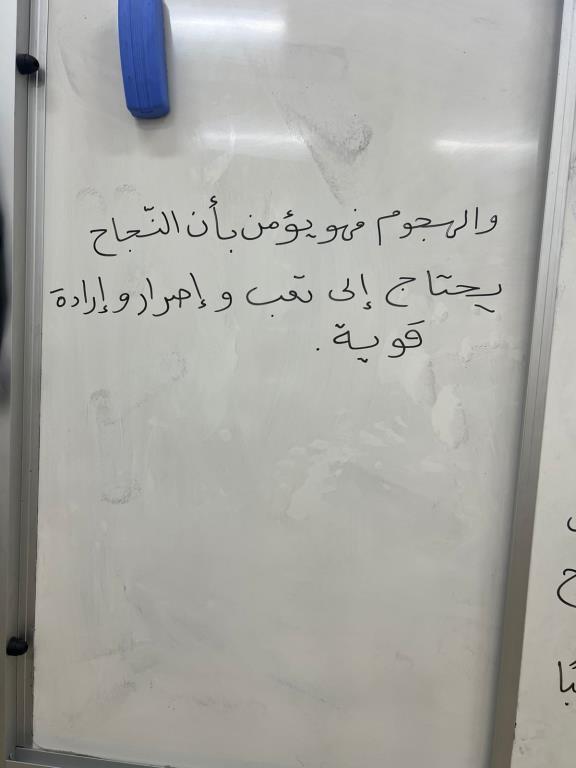 والهجوم فهو يؤمن بأن النّجاح
يحتاج إلى تعب وإصرار وإرادة
قوية .